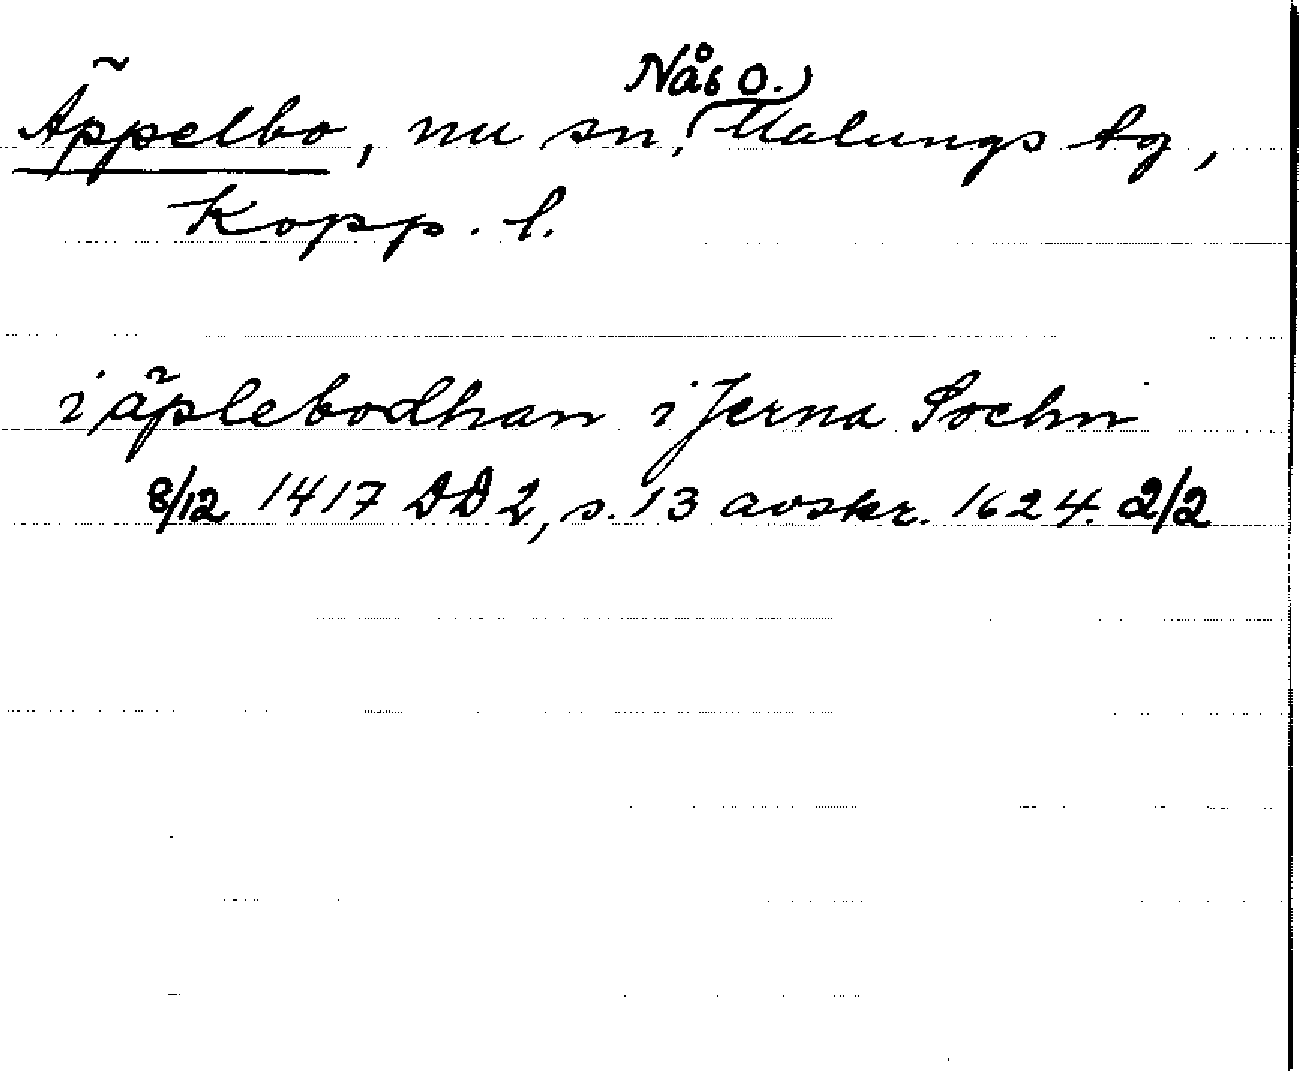 Nås o.)
Äppelbo, nu sn, (Malungs tg,
Kopp. l.
i äplebodhan i Jerna Sochn
8/12 1417 DD 2, s. 13 avskr. 1624. 2/2